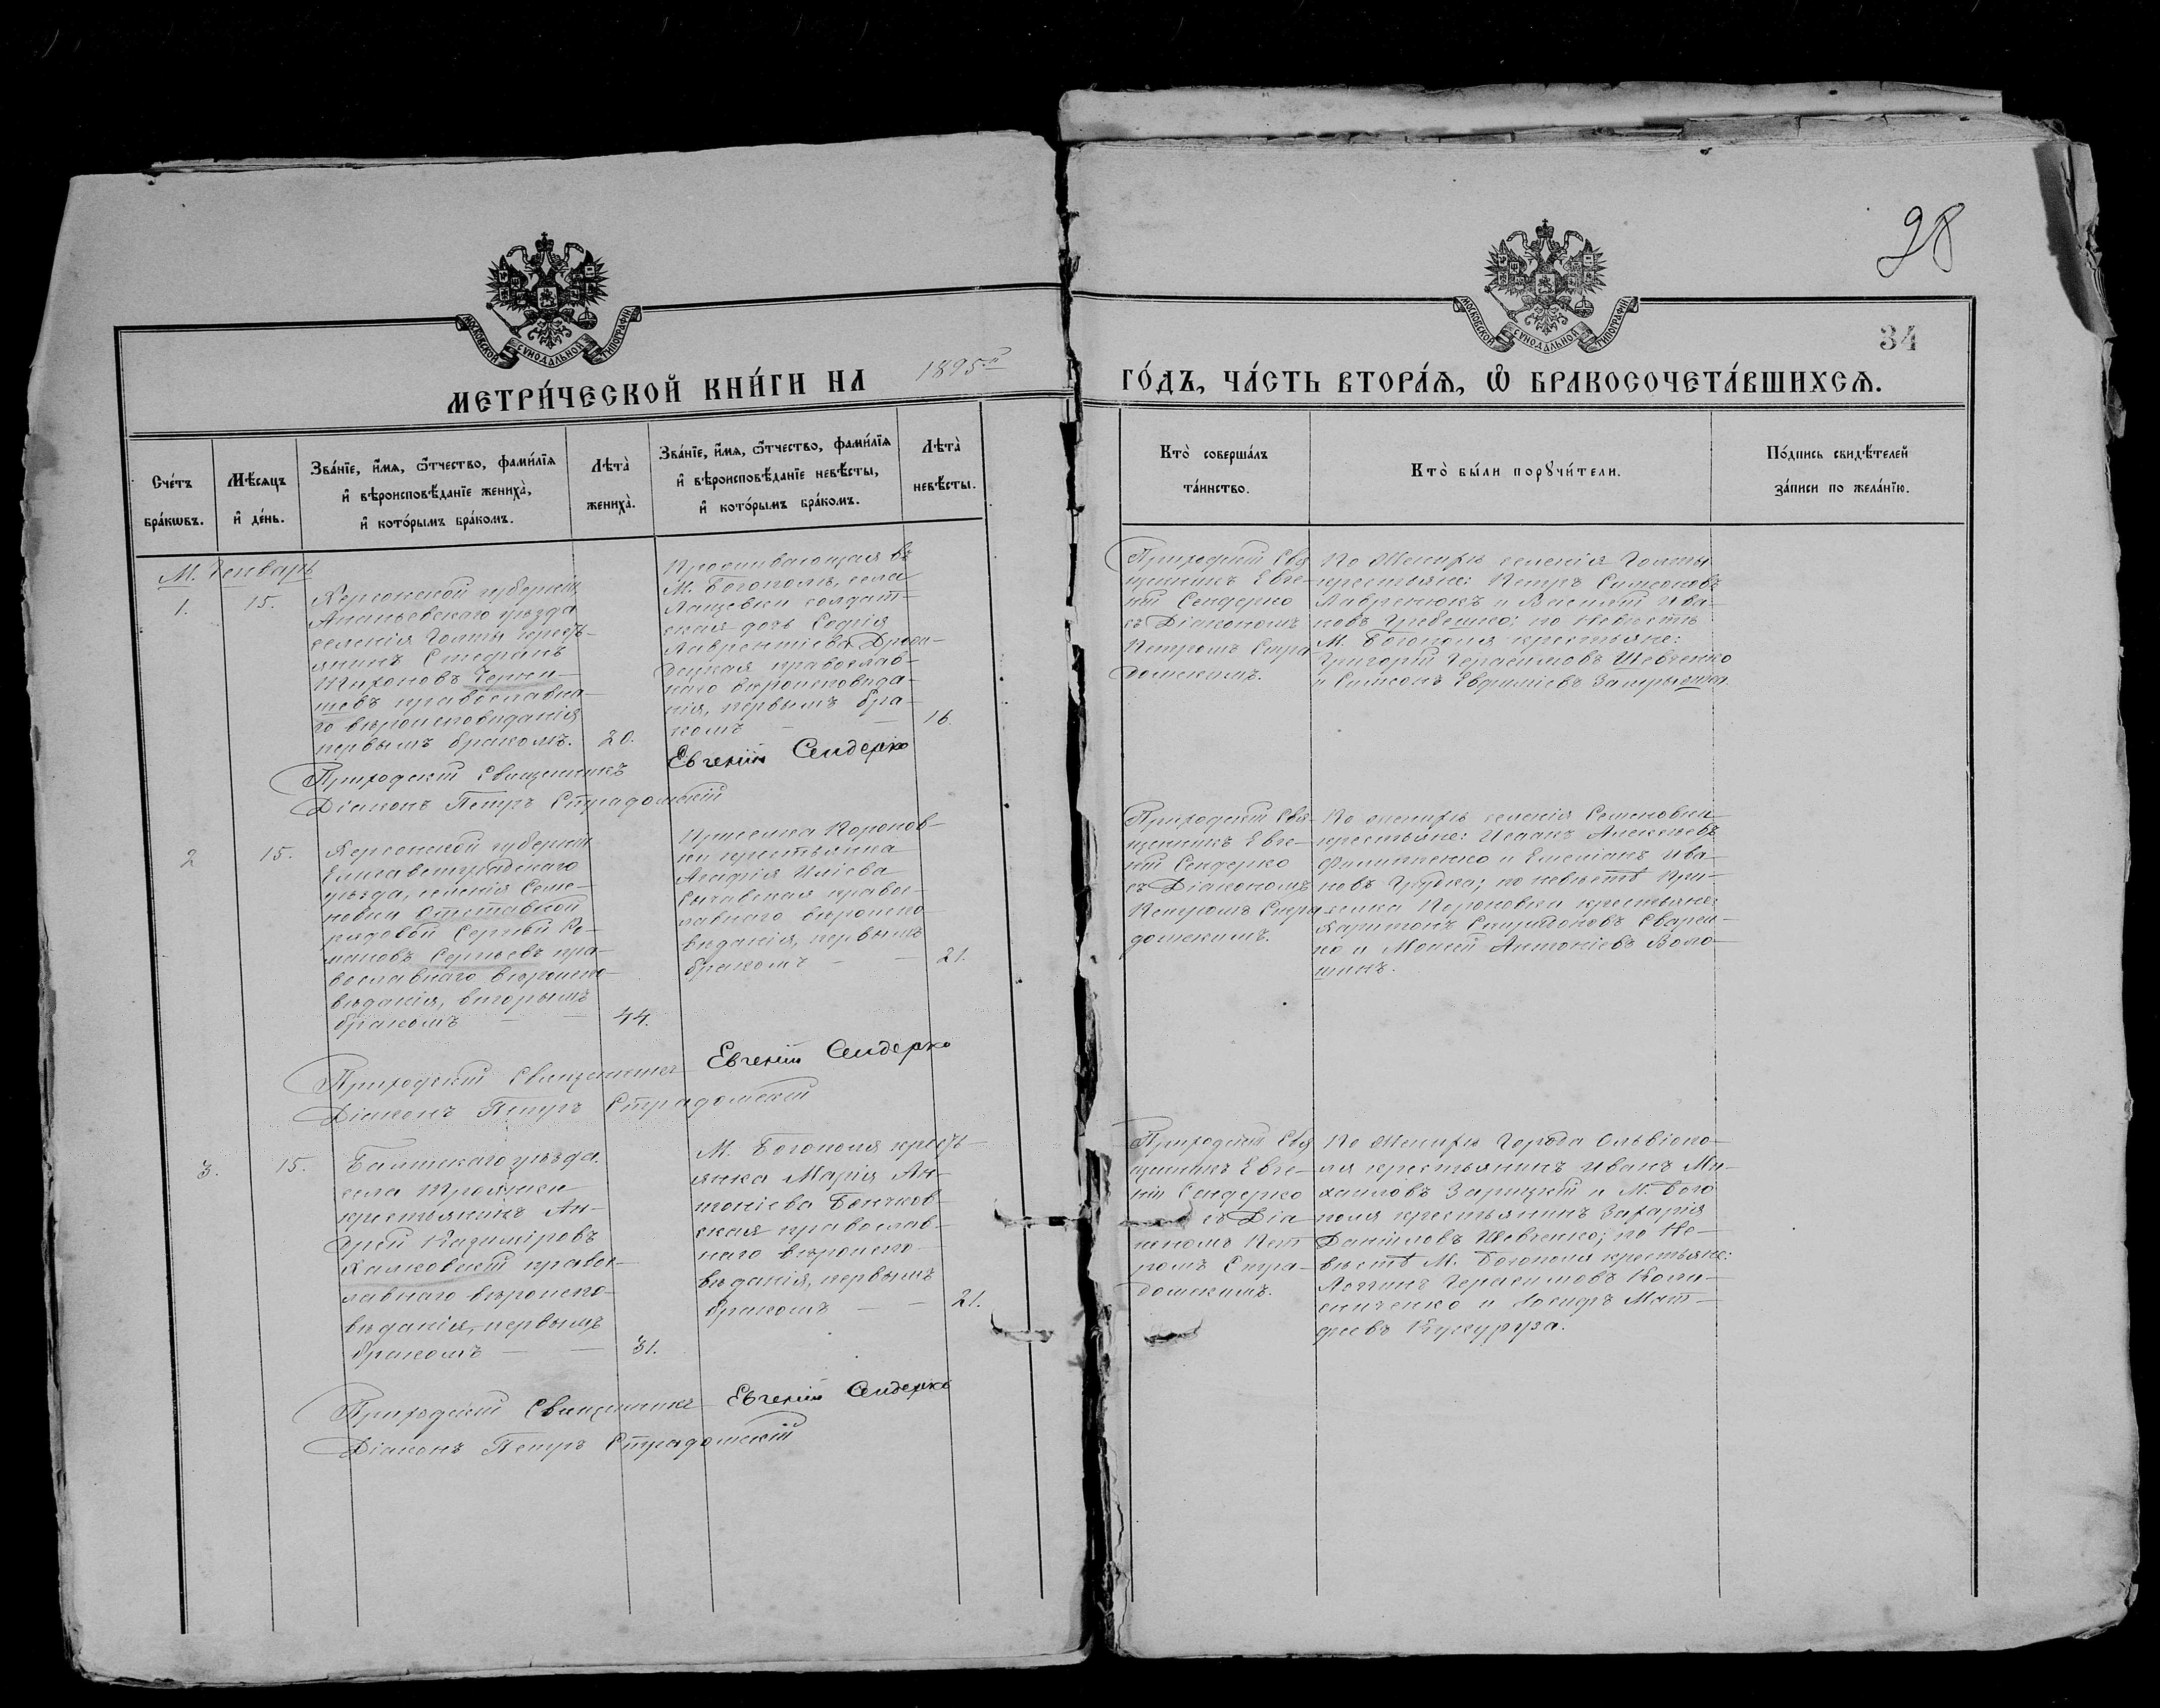 98
34
МОСКОВСКОЙ СѴНОДАЛЬНОЙ ТИПОГРАФІИ
МОСКОВСКОЙ СѴНОДАЛЬНОЙ ТИПОГРАФІИ
МЕТРИ́ЧЕСКОЙ КНИ́ГИ НА 1895й ГО́ДЪ, ЧА́СТЬ ВТОРА́Ѧ, Ѡ҆ БРАКОСОЧЕТА́ВШИХСѦ.
Сче́тъ
бра́кѡвъ.
Мѣ́сѧцъ
и҆ де́нь.
Зва́нїе, и҆́мѧ, ѻ҆́тчество, фами́лїѧ
и҆ вѣроисповѣ́данїе жениха̀,
и҆ кото́рымъ бра́комъ.
Лѣта̀
жениха̀.
Зва́нїе, и҆́мѧ, ѻ҆́тчество, фами́лїѧ
и҆ вѣроисповѣ́данїе невѣ́сты,
и҆ кото́рымъ бра́комъ.
Лѣта̀
невѣ́сты.
Кто̀ соверша́лъ
та́инство.
Кто̀ бы́ли порꙋчи́тели.
По́дпись свидѣ́телей
за́писи по жела́нїю.
М. Генварь
1.
15.
Херсонской губерніи
Ананьевскаго уѣзда
селенія Голты кресть-
янинъ Стефанъ
Тихоновъ Черны-
шевъ православна-
го вѣроисповѣданія
первымъ бракомъ.
20.
Проживающая въ
М. Богополѣ, села
солдат-
ская дочь Софія
Лаврентіева
православ-
наго вѣроисповѣда-
нія, первымъ бра-
комъ
16.
Приходскій Свя-
щенникъ Евге-
ній Сендерко
съ Діакономъ
Петромъ Стра-
домскимъ.
По Женихѣ селенія Голты
крестьяне: Петръ Симеоновъ
Лавренюкъ и Василій Ива-
новъ Гребешко; по Невѣстѣ
М. Богополя крестьяне:
Григорій Герасимовъ Шевченко
и Симеонъ Евфиміевъ
Приходскій Священникъ Евгеній Сендерко
Діаконъ Петръ Страдомскій
2
15.
Херсонской губерніи
Елисаветградскаго
уѣзда, селенія Семе-
новки Отставной
рядовой Сергѣй Ро-
мановъ Сергѣевъ пра-
вославнаго вѣроиспо-
вѣданія, вторымъ
бракомъ
44.
Приселка
крестьянка
Агафія Иліева
правос-
лавнаго вѣроиспо-
вѣданія, первымъ
бракомъ
21.
Приходскій Свя-
щенникъ Евге-
ній Сендерко
съ Діакономъ
Петромъ Стра-
домскимъ.
По женихѣ селенія Семеновки
крестьяне: Исаакъ Алексѣевъ
Филиппенко и Емеліанъ Ива-
новъ по невѣстѣ При-
селка крестьяне:
Харитонъ Спиридоновъ
и Моисей Антоніевъ Воло-
шинъ.
Приходскій Священникъ Евгеній Сендерко
Діаконъ Петръ Страдомскій
3.
15.
Балтскаго уѣзда
села
крестьянинъ Ан-
дрей Казиміровъ
правос-
лавнаго вѣроиспо-
вѣданія, первымъ
бракомъ
31.
М. Богополя кресть-
янка Марія Ан-
тоніева
православ-
наго вѣроиспо-
вѣданія, первымъ
бракомъ
21.
Приходскій Свя-
щенникъ Евге-
ній Сендерко
съ Діа-
кономъ Пет-
ромъ Стра-
домскимъ.
По Женихѣ Города Ольвіопо-
ля крестьянинъ Иванъ Ми-
хаиловъ Зарицкій и М. Бого-
поля крестьянинъ Захарія
Даніиловъ Шевченко; по Не-
вѣстѣ М. Богополя крестьяне:
Логгинъ Герасимовъ
и Іосифъ Мат-
феевъ Кукуруза.
Приходскій Священникъ Евгеній Сендерко
Діаконъ Петръ Страдомскій